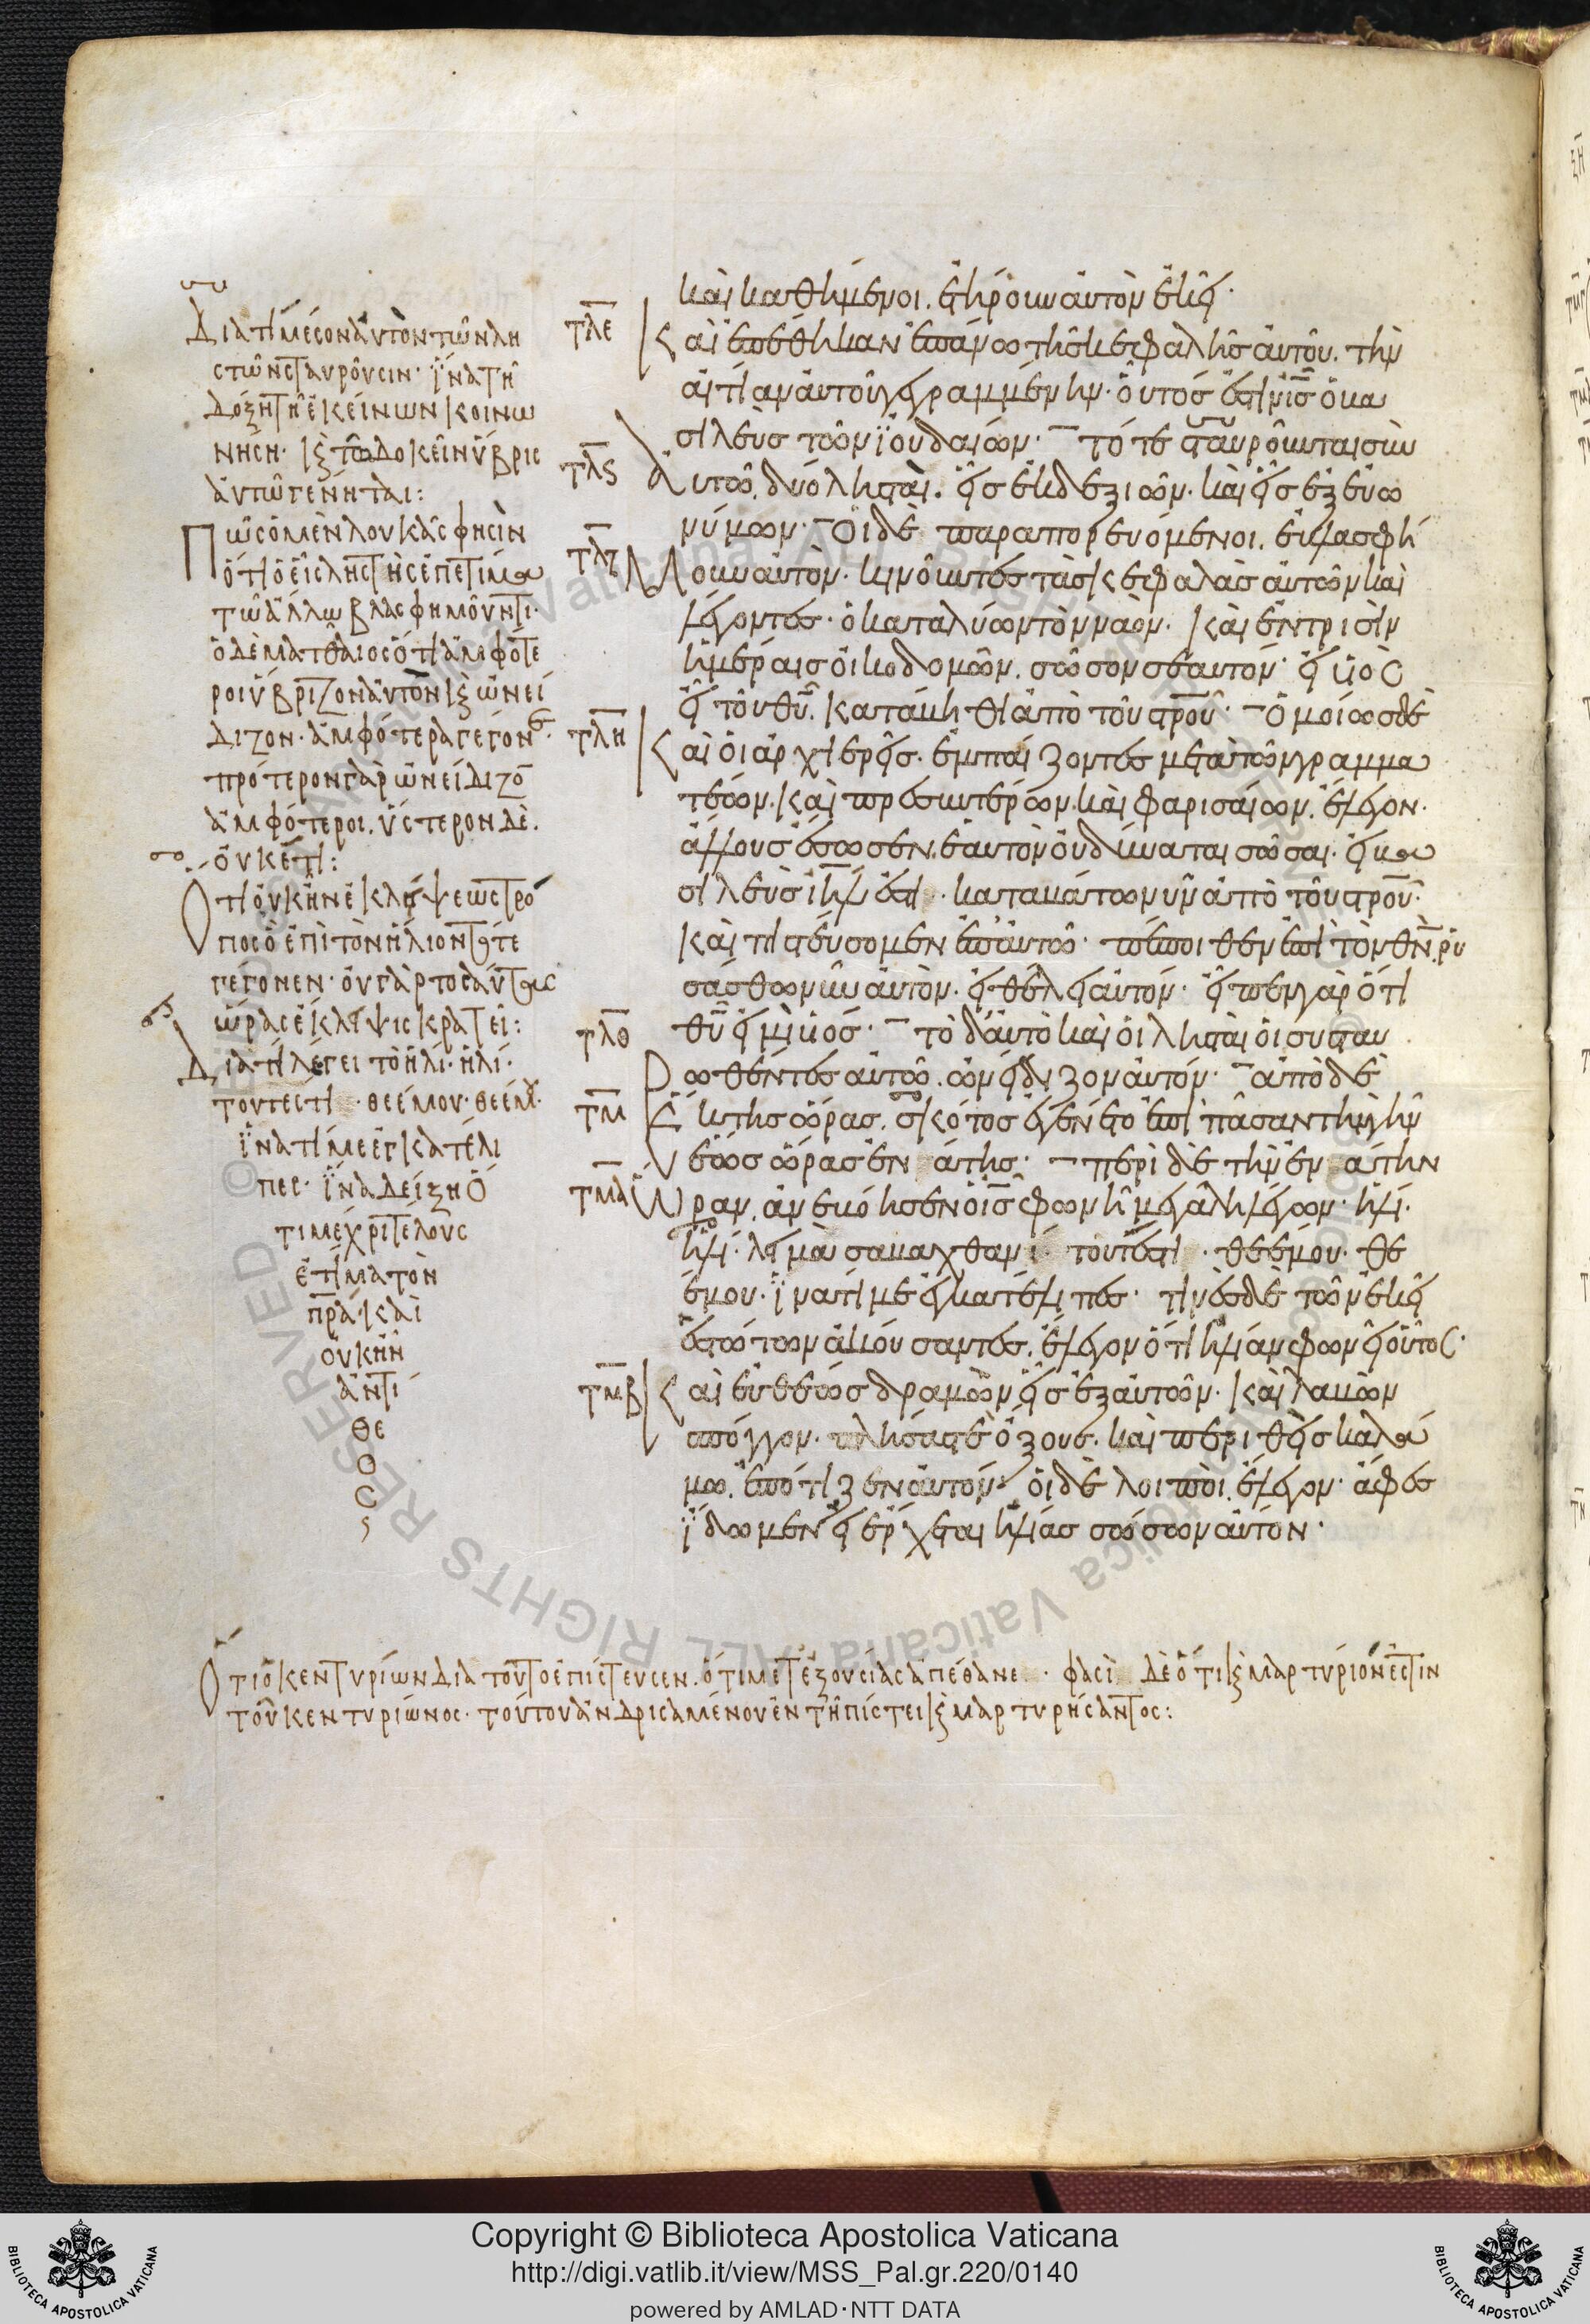 Διατί μέσον αὐτὸν τῶν λη
στῶν σταυροῦσιν· ἵνα τῆ
δόξη τῆ ἐκείνων κοινω
νήση· κ τῶ δοκεῖν ὕβρις
αὐτῶ γένηται:
Πῶς ὁ μὲν λουκᾶς φησὶν
ὅτι ὁ εἷς ληστὴς ἐπετίμα
τῶ ἄλλω βλασφημοῦντι·
ὁ δὲ ματθαῖος ὅτι ἀμφότε
ροι ὕβριζον αὐτὸν κ ὠνεί
διζον· ἀμφότερα γέγονε·
πρότερον γὰρ ὠνείδιζο
ἀμφότεροι. ὕστερον δὲ.
οὐκέτι:
Ὅτι οὐκ ἦν ἐκλήψεως τρό
πος ὁ ἐπὶ τὸν ἥλιον τότε
γέγονεν· οὐ γὰρ τοσαύταις
ὥρας ἔκληψις κρατεῖ:
Διατί λέγει τὸ ἠλί· ἠλί·
τουτέστι· θεέ μου· θεέ μου·
ἵνα τί με ἐγκατέλι
πες· ἵνα δείξη ὅ
τι μέχρι τέλους
ἐτίμα τὸν
πρα· καὶ
οὐκ ἦν
ἀντί
θε
ο
ς
τλε
τλς
τλζ
τλη
τλθ
τμ
τμα
τμβ
καὶ καθήμενοι. ἐτήρουν αὐτὸν ἐκεῖ·
Καὶ ἐπέθηκαν ἐπάνω τῆς κεφαλῆς αὐτοῦ. τὴν
αἰτίαν αὐτοῦ γεγραμμένην· οὗτός ἐστιν ις ὁ βα
σιλεὺς τῶν ἰουδαίων· τότε σταυροῦνται σὺν
Αὐτῶ. δύο λησταὶ. εἷς ἐκ δεξιῶν. καὶ εἷς ἐξ εὐω
νύμων· Οἱ δὲ παραπορευόμενοι. ἐβλασφή
Μουν αὐτὸν. κινοῦντες τὰς κεφαλὰς αὐτῶν καὶ
λέγοντες. ὁ καταλύων τὸν ναὸν. καὶ ἐν τρισὶν
ἡμέραις οἰκοδομῶν. σῶσον σεαυτόν· εἰ υἱὸς
εἶ τοῦ θυ. κατάβηθι ἀπὸ τοῦ στρου· Ὁμοίως δὲ
Καὶ οἱ ἀρχιερεῖς. ἐμπαίζοντες μετὰ τῶν γραμμα
τέων. καὶ πρεσβυτέρων. καὶ φαρισαίων. ἔλεγον.
ἄλλους ἔσωσεν. ἑαυτὸν οὐ δύναται σῶσαι. εἰ βα
σιλεὺς ιηλ ἐστι. καταβάτω νῦν ἀπὸ τοῦ στρου·
καὶ πιστεύσομεν ἐπ' αὐτῶ· πέποιθεν ἐπὶ τὸν θν. ῥυ
σάσθω νῦν αὐτὸν. εἰ θέλει αὐτόν· εἶπεν γὰρ ὅτι
θυ εἰμὶ υἱός· τὸ δ' αὐτὸ καὶ οἱ λησταὶ οἱ συσταυ
Ρωθέντες αὐτῶ. ὠνείδιζον αὐτόν· ἀπὸ δὲ
Ἕκτης ὥρας. σκότος ἐγένετο ἐπὶ πᾶσαν τὴν γῆν
ἕως ὥρας ἐνάτης· περὶ δὲ τὴν ἐνάτην
Ὥραν. ἀνεβόησεν ὁ ις φωνῆ μεγάλη λέγων· ἠλί.
ἠλί. λεῖμὰ σαβαχθανί. τουτέστι. θεέ μου. θε
έ μου. ἵνα τί με ἐγκατέλιπες· τινὲς δὲ τῶν ἐκεῖ
ἑστώτων ἀκούσαντες. ἔλεγον ὅτι ἠλίαν φωνεῖ οὗτος·
Καὶ εὐθέως δραμὼν εἷς ἐξ αὐτῶν. καὶ λαβὼν
σπόγγον. πλήσας τε ὄξους. καὶ περιθεὶς καλά
μω. ἐπότιζεν αὐτόν· οἱ δὲ λοιποὶ. ἔλεγον· ἄφες
ἴδωμεν εἰ ἔρχεται ἠλίας σώσων αὐτόν·
Ὅτι ὁ κεντυρίων διὰ τοῦτο ἐπίστευσεν. ὅτι μετ' ἐξουσίας ἀπέθανε· φασὶ δὲ ὅτι κ μαρτύριον ἐστιν
τοῦ κεντυρίωνος· τούτου ἀνδρισαμένου ἐν τῆ πίστει κ μαρτυρήσαντος:
Copyright © Biblioteca Apostolica Vaticana
http://digi.vatlib.it/view/MSS_Pal.gr.220/0140
powered by AMLAD·NTT DATA
BIBLIOTECA APOSTOLICA VATICANA
BIBLIOTECA APOSTOLICA VATICANA